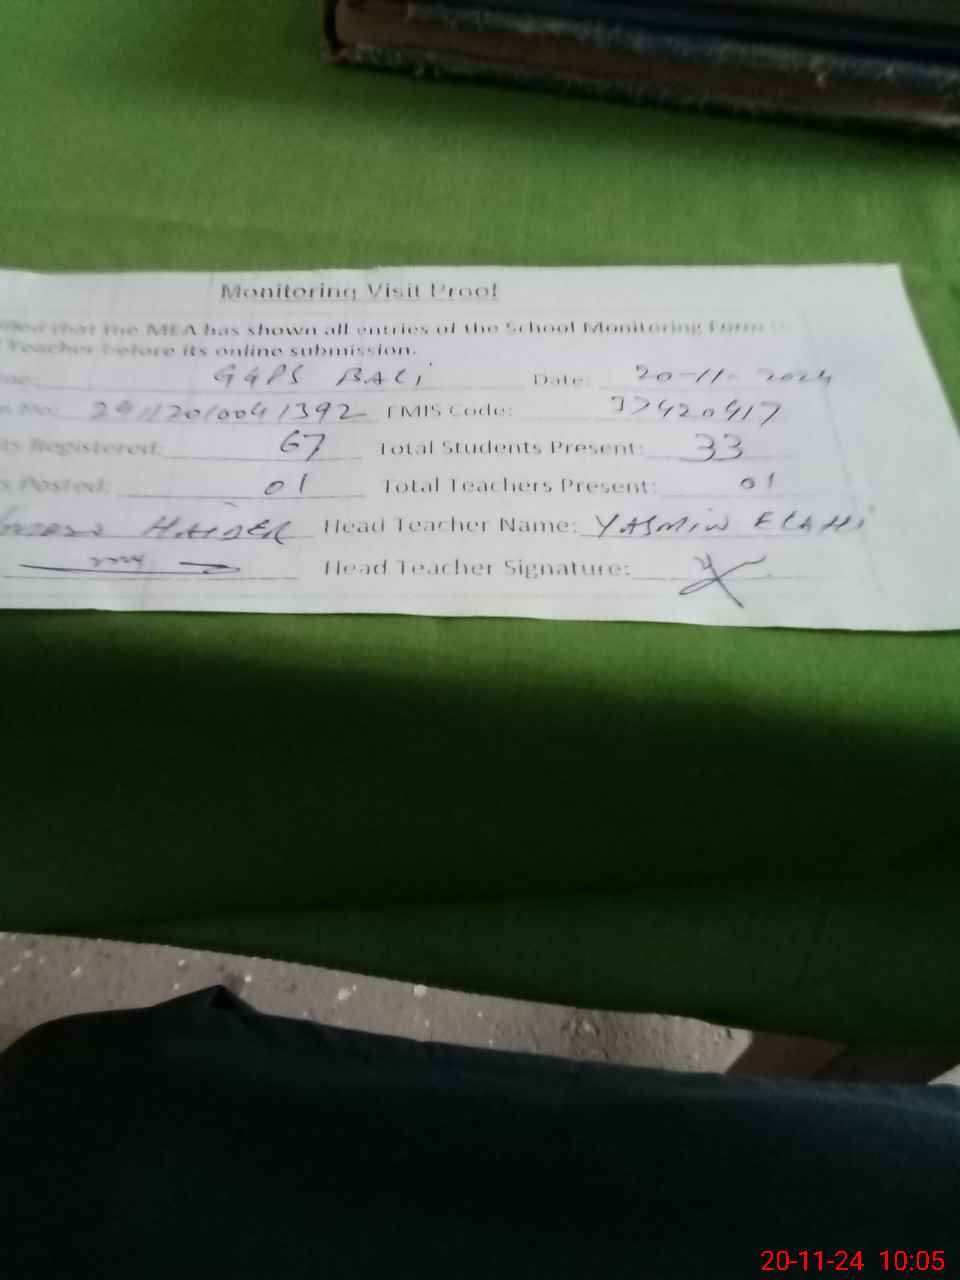 Monitoring Visit Proof
that the MEA has shown all entries of the School Monitoring Form
Teacher before its online submission.
GGPS BALI Date: 20-11-2024
No: EMIS Code: 37420417
Registered: 67 Total Students Present: 33
Posted: 01 Total Teachers Present: 01
HAIDER Head Teacher Name: YASMIN ELAHI
Head Teacher Signature:
20-11-24 10:05